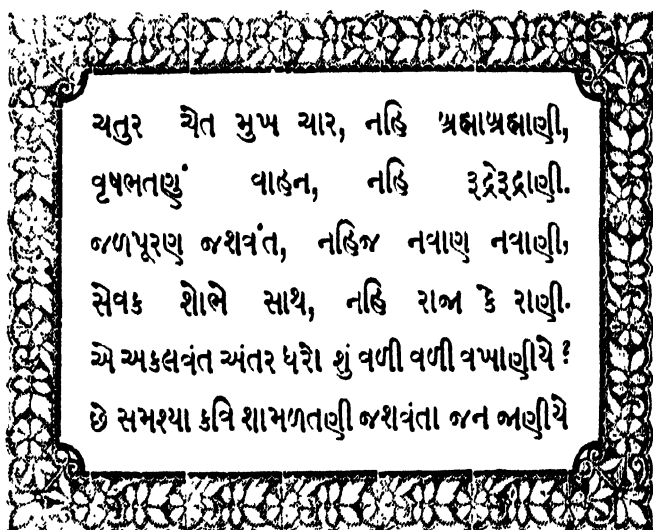 ચતુર ચેત મુખ ચાર, નહિ બ્રહ્માબ્રહ્માણી,
વૃષભતણું વાહન, નહિ રૂદ્રેરૂદ્રાણી.
જળપૂરણ જશવંત, નહિજ નવાણ નવાણી,
સેવક શોભે સાથ, નહિ રાજા કે રાણી.
એ અકલવંત અંતર ધરો શું વળી વળી વખાણીયે ?
છે સમશ્યા કવિ શામળતણી જશવંતા જન જાણીયે